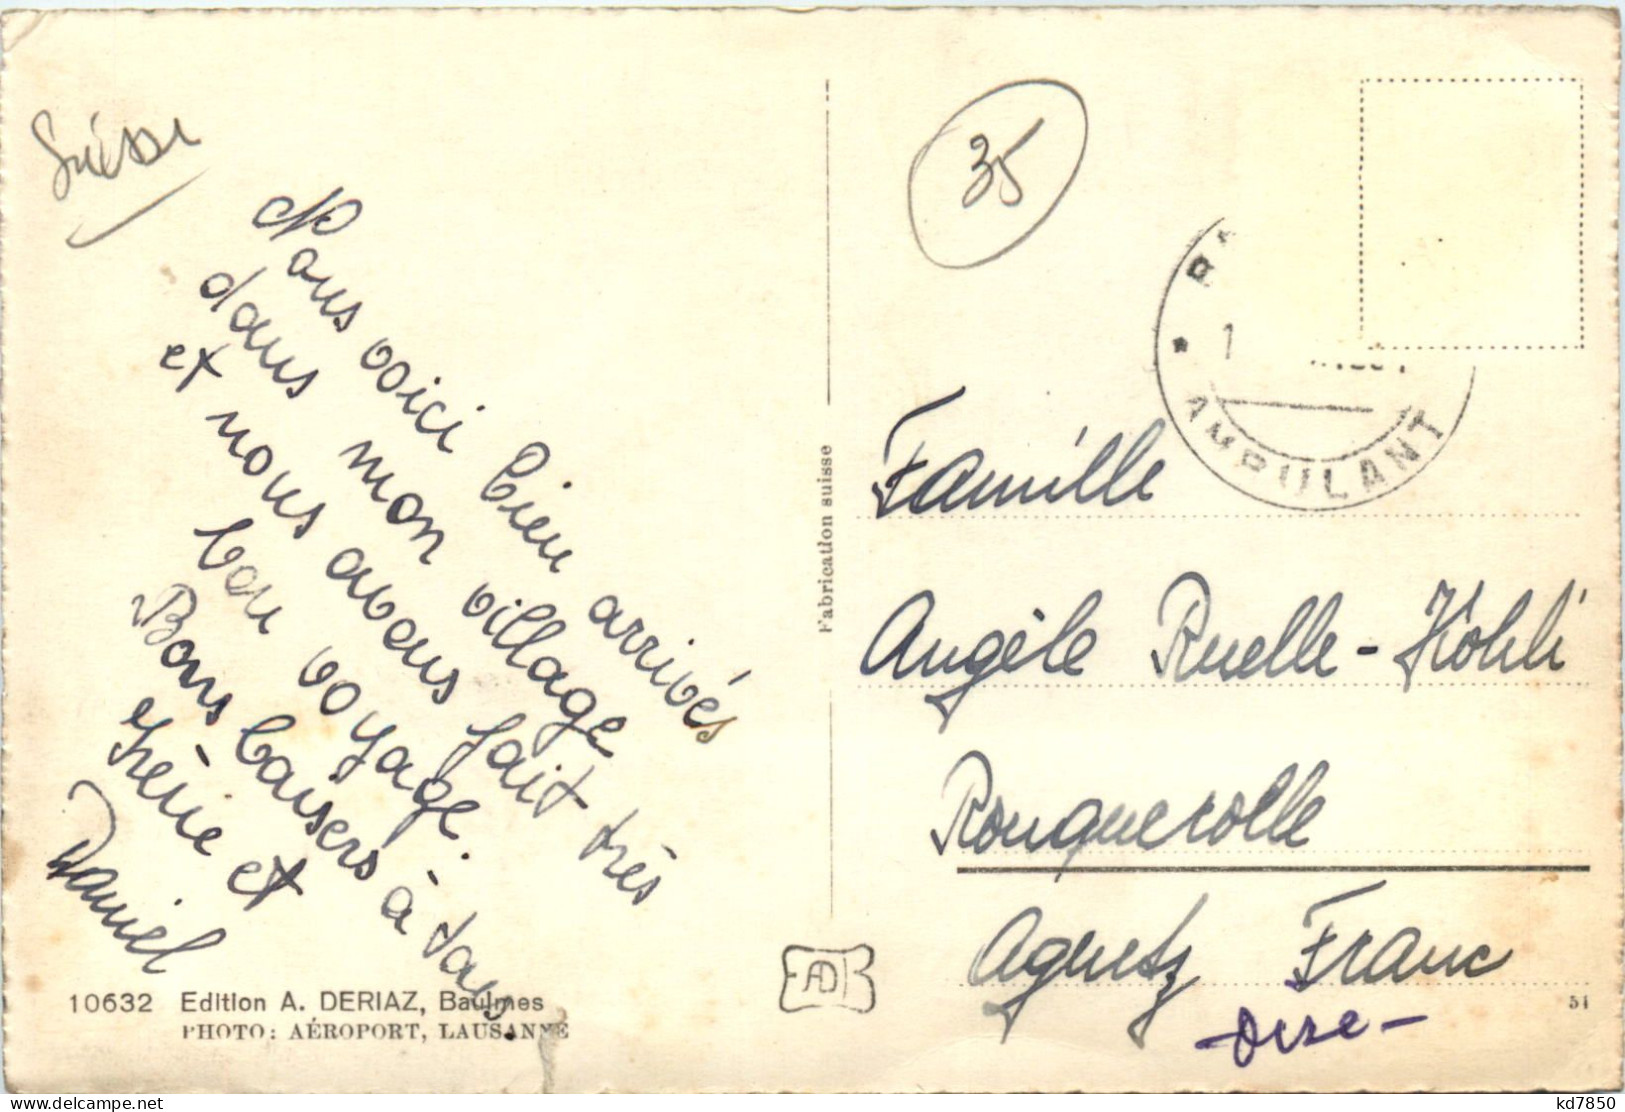 Suisse
35
Nous voici bien arrivés
dans mon village
et nous avons fait très
bon voyage.
Bons baisers à tous
Irène et
Daniel
10632 Edition A. DERIAZ, Baulmes
PHOTO: AÉROPORT, LAUSANNE
Fabrication suisse
AD
1
AMBULANT
Famille
Angèle Ruelle-Kohli
Ronquerolle
Agnetz Franc
-Oise-
51
kd7850